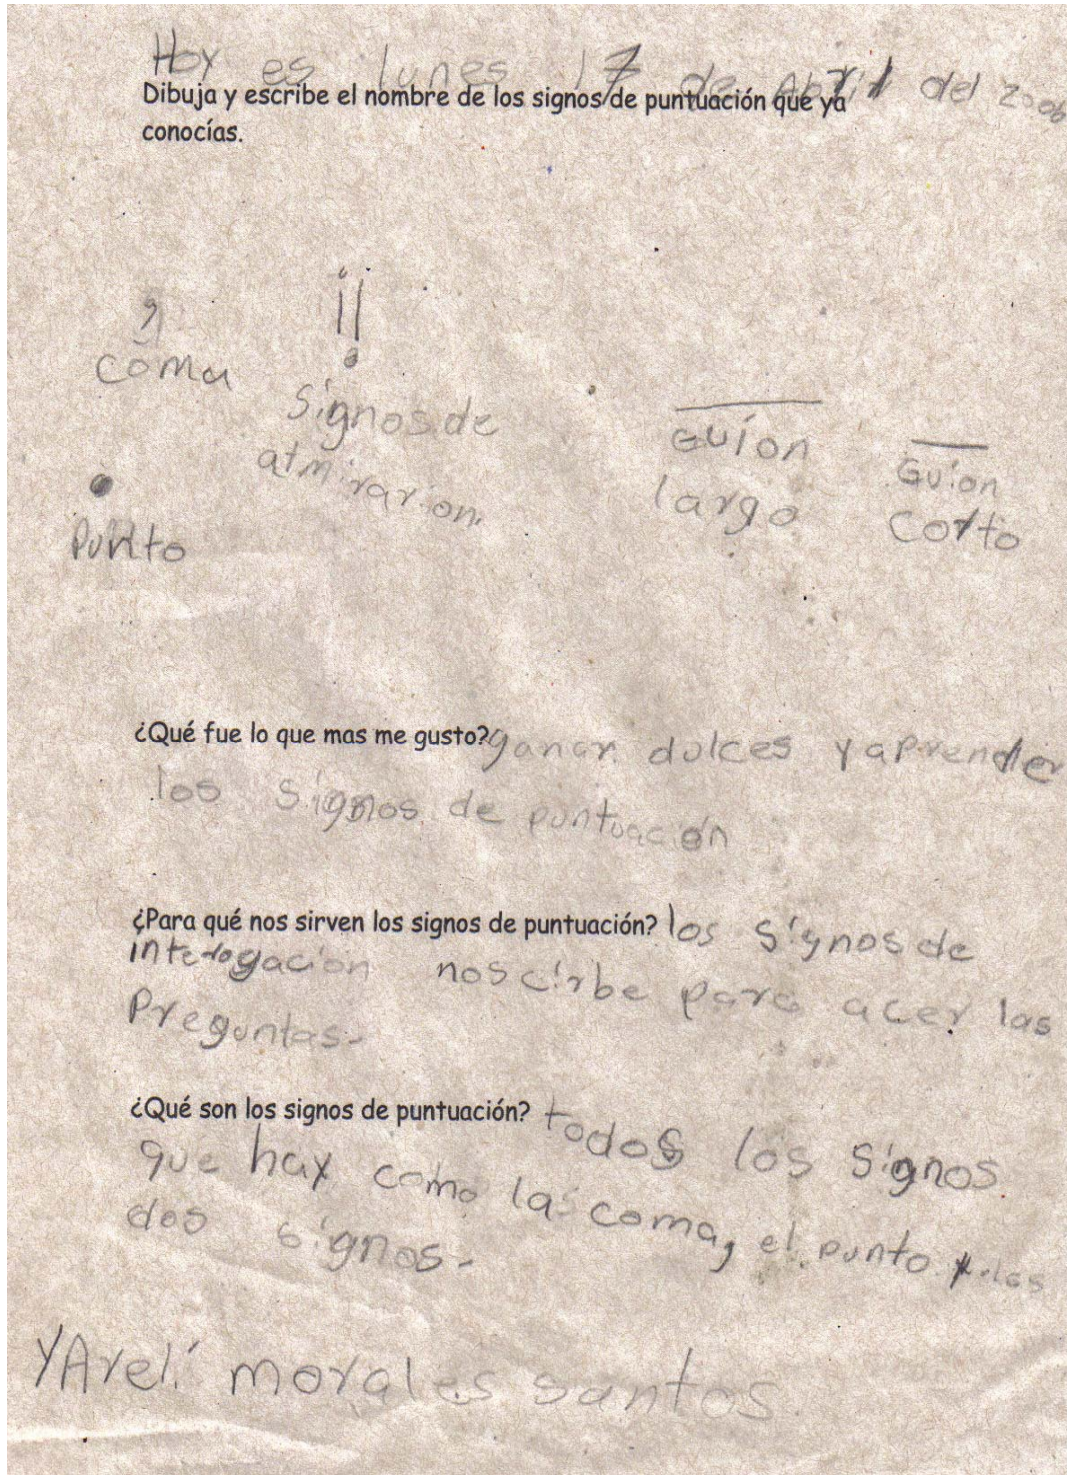 Hoy es lunes 17 de Abril del 2006
Dibuja y escribe el nombre de los signos de puntuación que ya
conocías.
,
coma
¡!
signos de
atmirarion
Guíon
largo
Guíon
corto
Punto
¿Qué fue lo que mas me gusto? ganar dulces y aprender
los signos de puntuación
¿Para qué nos sirven los signos de puntuación? los signos de
interogación nos cirbe para acer las
Preguntas.
¿Qué son los signos de puntuación? todos los signos
que hay como la coma, el punto y los
dos signos.
YAreli morales santos